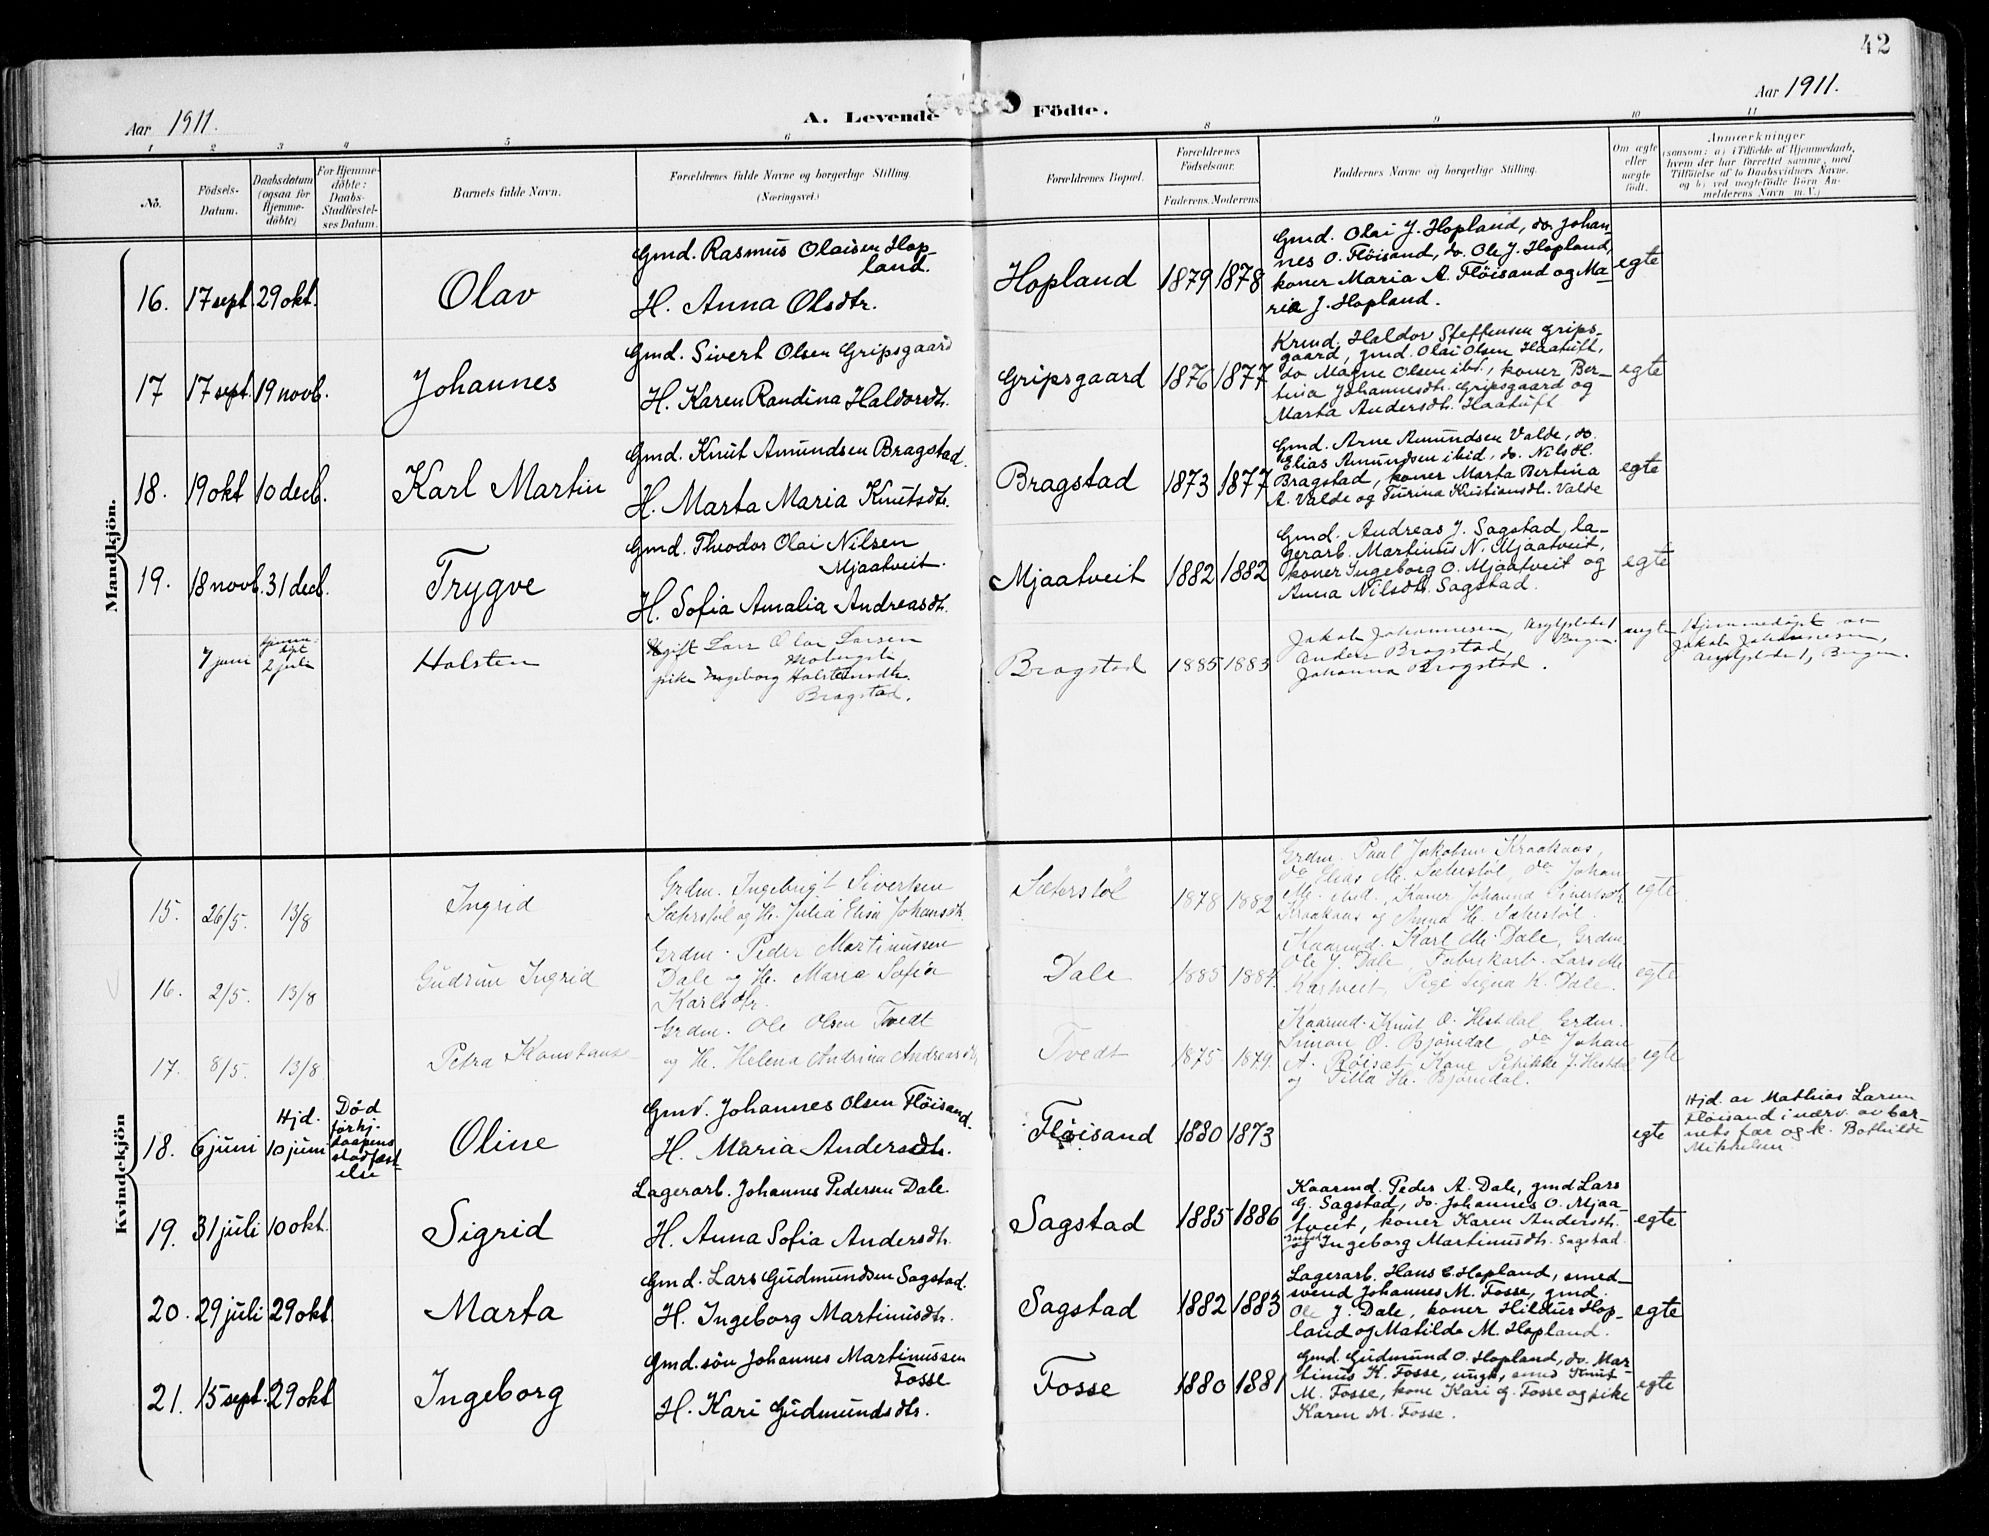 42
Aar 1911.
A. Levende Födte.
Aar 1911.
1 2 3 4 5 6 8 9 10 11
No.
Födsels-Datum.
Daabsdatum (ogsaa for Hjemme-döbte)
For Hjemme-döbte: Daabs-Stadfæstel-ses Datum.
Barnets fulde Navn.
Forældrenes fulde Navne og borgerlige Stilling. (Næringsvei.)
Forældrenes Bopæl.
Forældrenes Födselsaar.
Faderens. Moderens.
Faddernes Navne og borgerlige Stilling.
Om ægte eller uægte födt.
Anmærkninger
(saasom: a) i Tilfælde af Hjemmedaab, hvem der har forrettet samme, med Tilföielse af to Daabsvidners Navne. og b) ved uægtefödte Börn An-melderens Navn m. V.)
Mandkjön.
16. 17 sept. 29 okt. Olav
Gmd. Rasmus Olaisen Hop-
land.
H. Anna Olsdtr.
Hopland 1879 1878
Gmd. Olai J. Hopland, do. Johan-
nes O. Flöisand, do. Ole J. Hopland,
koner Maria A. Flöisand og Ma-
ria J. Hopland.
egte
17 17 sept. 19 novb. Johannes
Gmd. Sivert Olsen Gripsgaard
H. Karen Randina Haldorsdtr.
Gripsgaard 1876 1877
Krmd. Haldor Steffensen Grips-
gaard, gmd. Olai Olsen Haatuft,
do Magne Olsen ibd., koner Ber-
tina Johannesdtr. Gripsgaard og
Marta Andersdtr. Haatuft
egte
18. 19 okt 10 decb. Karl Martin
Gmd. Knut Amundsen Bragstad.
H. Marta Maria Knutsdtr.
Bragstad 1873 1877
Gmd. Arne Amundsen Valde, do.
Elias Amundsen ibid, do. Nils H.
Bragstad, koner Marta Bertina
A. Valde og Turina Kristiansdtr. Valde
egte
19. 18 novb. 31 decb. Trygve
Gmd. Theodor Olai Nilsen
Mjaatveit.
H. Sofia Amalia Andreasdtr.
Mjaatveit 1882 1882
Gmd. Andreas J. Sagstad, la-
gerarb. Martinus N. Mjaatveit,
koner Ingeborg O. Mjaatveit og
Anna Nilsdtr. Sagstad.
egte
7 juni 2 juli Halsten
Ugift Lars Olai Larsen
pike Ingeborg Halstensdtr.
Bragstad.
Bragstad 1885 1883
Jakob Johannesen, Asylplads 1 Bergen.
Anders Bragstad,
Johanna Bragstad.
uegte
Hjemmedøpt av
Jakob Johannesen,
Asylplads 1, Bergen.
Kvindekjön
15. 26/5. 13/8 Ingrid
Grdm. Ingebrigt Sivertsen
Sæterstøl og H. Julia Elise Johansdtr.
Sæterstøl 1878 1882
Grdm. Paul Jakobsen Kraakaas,
do Elias M. Sæterstøl, do Johan
M. ibid., Koner Johanna Sivertsdtr.
Kraakaas og Anna H. Sæterstøl.
egte
16. 2/5. 13/8 Gudrun Ingrid
Grdm. Peder Martinussen
Dale og H. Maria Sofia
Karlsdtr.
Dale 1885 1884.
Kaarmd. Karl M. Dale, Grdm.
Ole J. Dale, Fabrikarb. Lars M.
Kartveit, Pige Signa K. Dale.
egte
17. 8/5. 13/8 Petra Konstanse
Grdm. Ole Olsen Tvedt
og H. Helena Andrina Andreasdtr.
Tvedt 1875 1879.
Kaarmd. Knut O. Hestdal, Grdm.
Simon O. Bjørndal, do Johan
A. Røisæt, Kone Petrikke J. Hestdal
og Tilla H. Bjørndal.
egte
18. 6 juni Hjd. 10 juni
Død
førhj.
daapens
stadfæst-
else
Oline
Gmd. Johannes Olsen Flöisand.
H. Maria Andersdtr.
Flöisand 1880 1873
egte
Hjd. av Mathias Larsen
Flöisand i nærv. av bar-
nets far og k. Bothilde
Mikkelsen.
19. 31 juli 10 okt. Sigrid
Lagerarb. Johannes Pedersen Dale.
H. Anna Sofia Andersdtr.
Sagstad 1885 1886
Kaarmd. Peder A. Dale, gmd Lars
G. Sagstad, do. Johannes O. Mjaa-
tveit, koner Karen Andersdtr.
og Ingeborg Martinusdtr. Sagstad.
egte
20. 29 juli 29 okt Marta
Gmd. Lars Gudmundsen Sagstad.
H. Ingeborg Martinusdtr.
Sagstad 1882 1883
Lagerarb. Hans E. Hopland, smed-
svend Johannes M. Fosse, gmd.
Ole J. Dale, koner Hildur Hop-
land og Matilda M. Hopland.
egte
21. 15 sept. 29 okt Ingeborg
Gmd. søn Johannes Martinussen
Fosse
H. Kari Gudmundsdtr.
Fosse 1880 1881
Gmd. Gudmund O. Hopland, do. Mar-
tinus K. Fosse, ungk. smed Knut
M. Fosse, kone Kari G. Fosse og pike
Karen M. Fosse.
egte